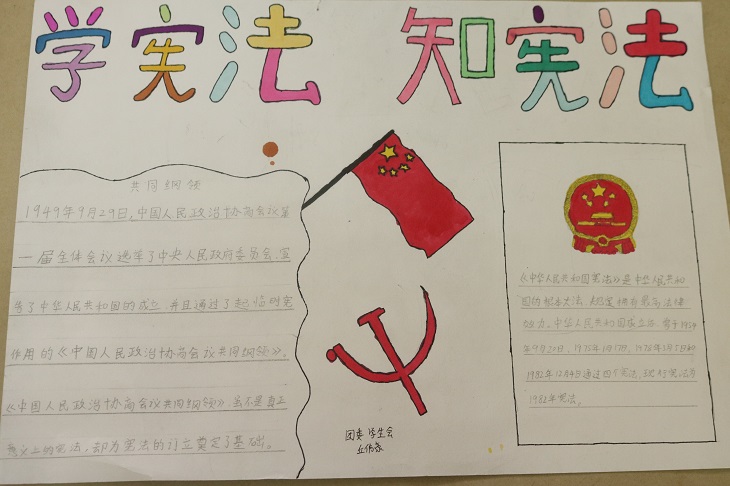 学宪法 知宪法
共同纲领
1949年9月29日,中国人民政治协商会议第
一届全体会议选举了中央人民政府委员会,宣
告了中华人民共和国的成立,并且通过了起临时宪
作用的《中国人民政治协商会议共同纲领》。
《中国人民政治协商会议共同纲领》,虽不是真正
意义上的宪法,却为宪法的订立奠定了基础。
《中华人民共和国宪法》是中华人民共和
国的根本大法,规定拥有最高法律
效力。中华人民共和国成立后,曾于1954
年9月20日、1975年1月17日、1978年3月5日和
1982年12月4日通过四个宪法,现行宪法为
1982年宪法。
团委 学生会